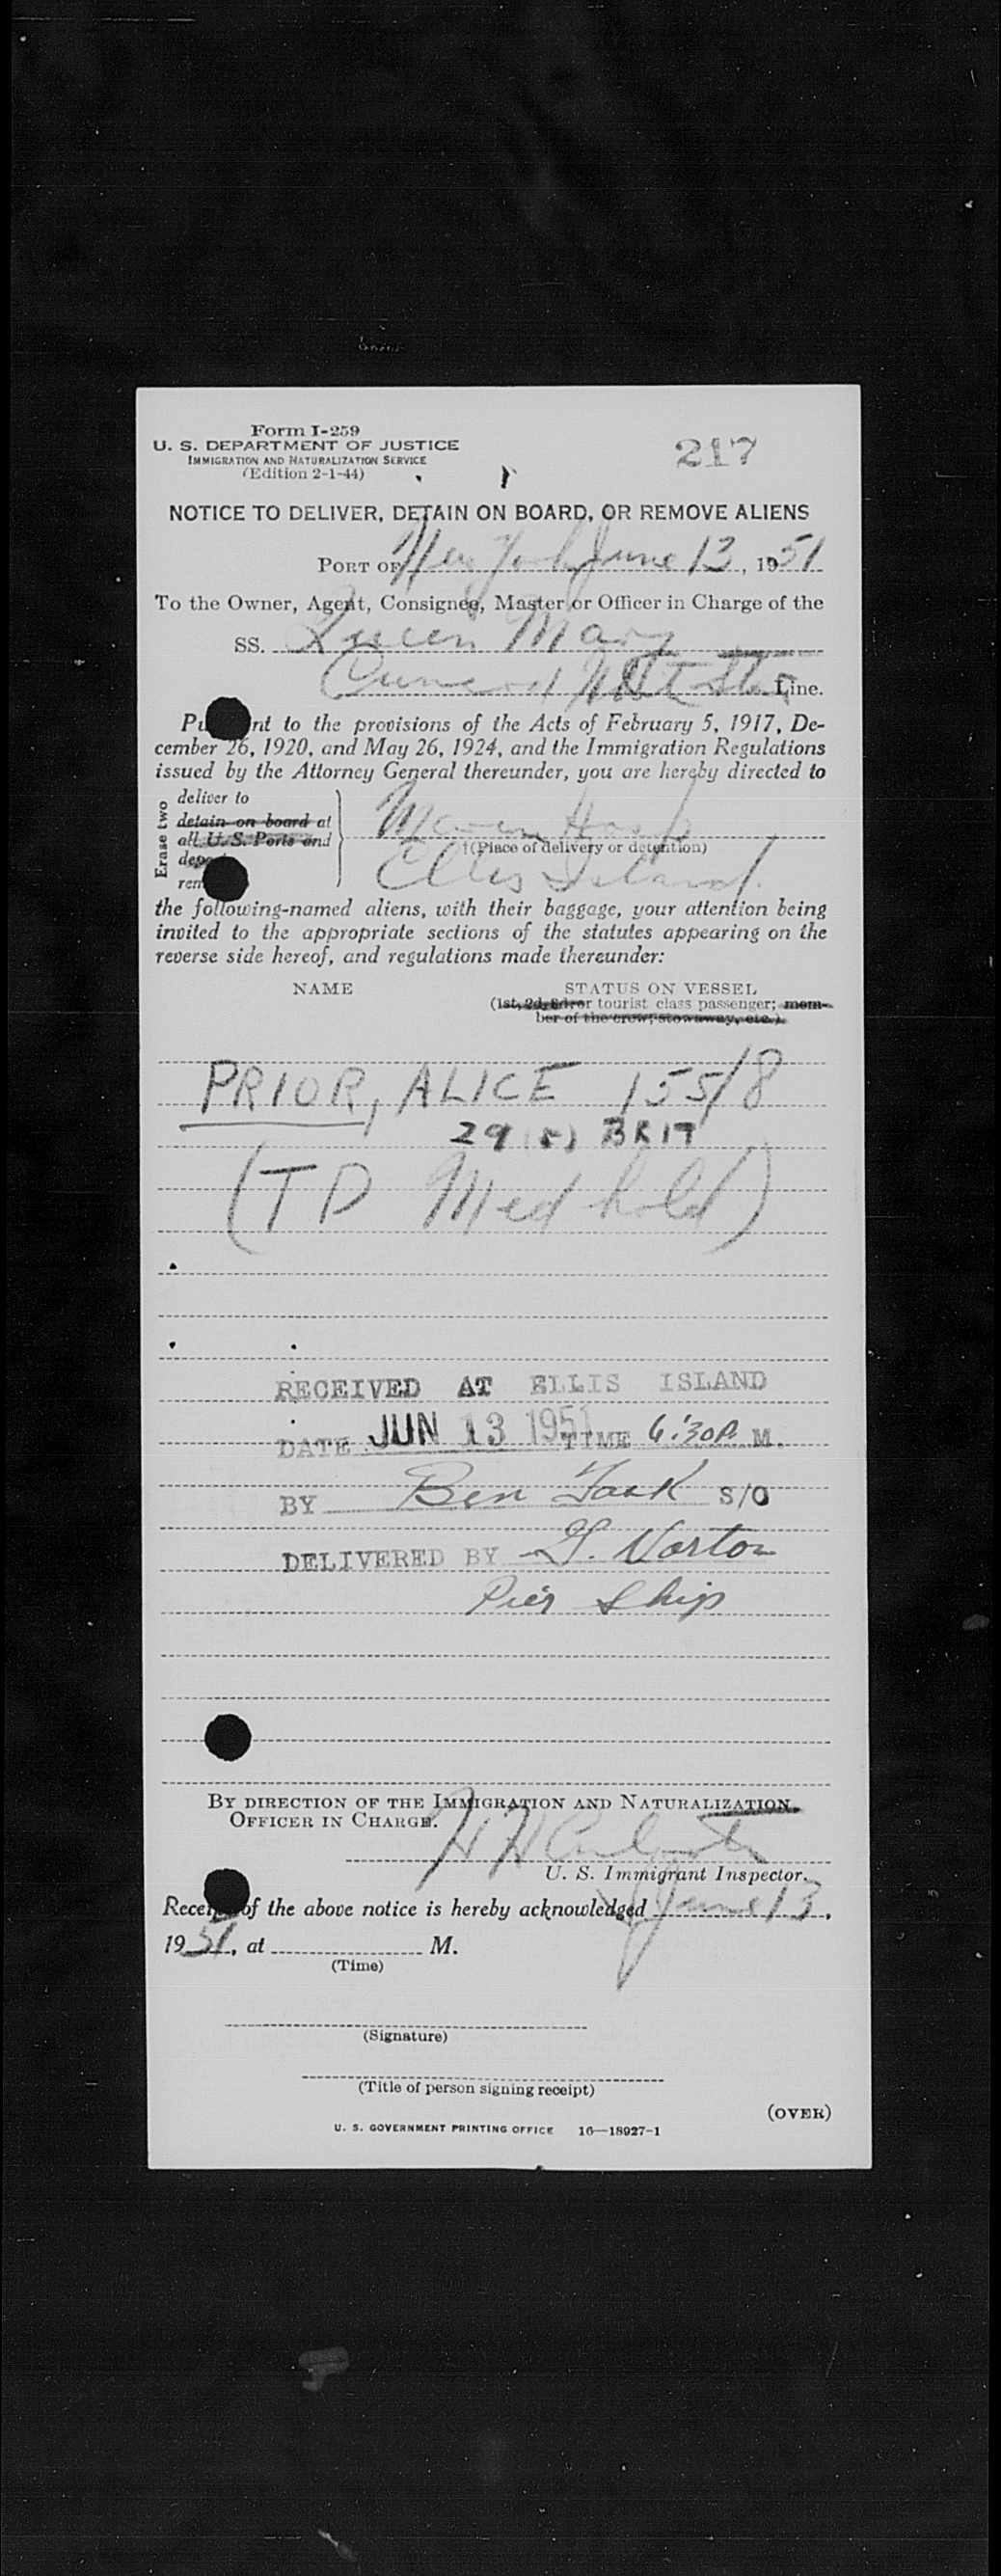 Form I-259
U. S. DEPARTMENT OF JUSTICE
IMMIGRATION AND NATURALIZATION SERVICE
(Edition 2-1-44)
217
NOTICE TO DELIVER, DETAIN ON BOARD, OR REMOVE ALIENS
PORT OF New York June 13, 1951
To the Owner, Agent, Consignee, Master or Officer in Charge of the
SS. Queen Mary
Cunard White Star Line.
Pu nt to the provisions of the Acts of February 5, 1917, De-
cember 26, 1920, and May 26, 1924, and the Immigration Regulations
issued by the Attorney General thereunder, you are hereby directed to
Erase two
deliver to
detain on board at
all U. S. Ports and
depo
rem
Marin Hosp
†(Place of delivery or detention)
Ellis Island.
the following-named aliens, with their baggage, your attention being
invited to the appropriate sections of the statutes appearing on the
reverse side hereof, and regulations made thereunder:
NAME STATUS ON VESSEL
(1st, 2d, 3d, or tourist class passenger; mem-
ber of the crew, stowaway, etc.)
PRIOR, ALICE 155/8
29 (5) BK17
(TD Med hold)
RECEIVED AT ELLIS ISLAND
DATE JUN 13 1951 TIME 6:30 P. M.
BY Ben S/O
DELIVERED BY Norton
Pier Ship
BY DIRECTION OF THE IMMIGRATION AND NATURALIZATION
OFFICER IN CHARGE.
U. S. Immigrant Inspector.
Receip of the above notice is hereby acknowledged June 13,
1951, at M.
(Time)
(Signature)
(Title of person signing receipt)
(OVER)
U. S. GOVERNMENT PRINTING OFFICE 16—18927-1